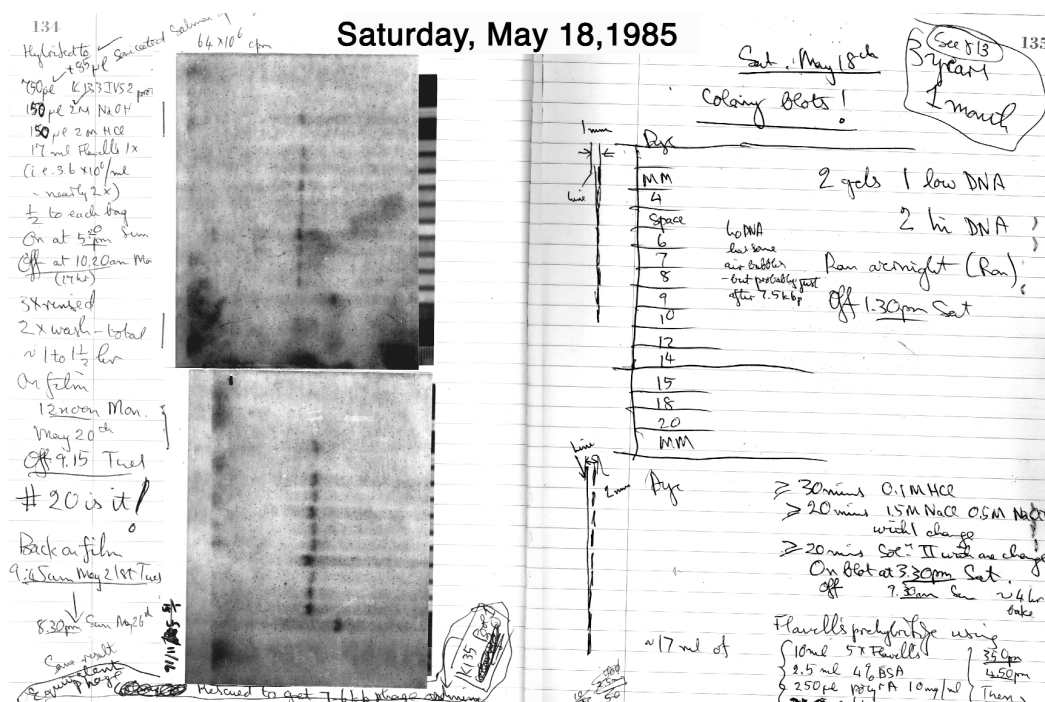 Saturday, May 18,1985
134
64 x 10⁶ cpm
Hybridised to
+ 35 µl Sonicated Salmon
750 µl K133IVS2
150 µl 2M NaOH
150 µl 2M HCl
17 ml Flavells 1x
(i.e. 3.6 x 10⁶/ml
- nearly 2x)
½ to each bag
On at 5.20 pm Sun
Off at 10.20am Mon
(17hr)
3x rinsed
2 x wash - total
~ 1 to 1½ hr
On film
12 noon Mon.
May 20th
Off 9.15 Tues
# 20 is it!
Back on film
9:45am May 21st Tues
8.30pm Sun May 26th
Same result
Equivalent
phage
Rescued to get 7.6 kb phage
K135
135
Sat. May 18th
See p13
3 years
1 month
Colony blots!
1mm
line
Dye
MM
4
Space
6
7
8
9
10
12
14
15
18
20
MM
Dye
2 gels 1 low DNA
2 hi DNA
Lo DNA
has some
air bubbles
- but probably just
after 7.5kbp
Ran overnight (Ran)
Off 1.30pm Sat
line
2mm
≥ 30mins 0.1M HCl
≥ 20mins 1.5M NaCl 0.5M NaOH
with 1 change
≥ 20 mins Solⁿ II with one change
On Blot at 3.30pm Sat.
Off 9.30am Sun ~4hr
bake
Flavells prehybridize using
~17 ml of
10ml 5x Flavells
2.5 ml 4% BSA
250 µl poly A 10mg/ml
3.50pm
4.50pm
Then